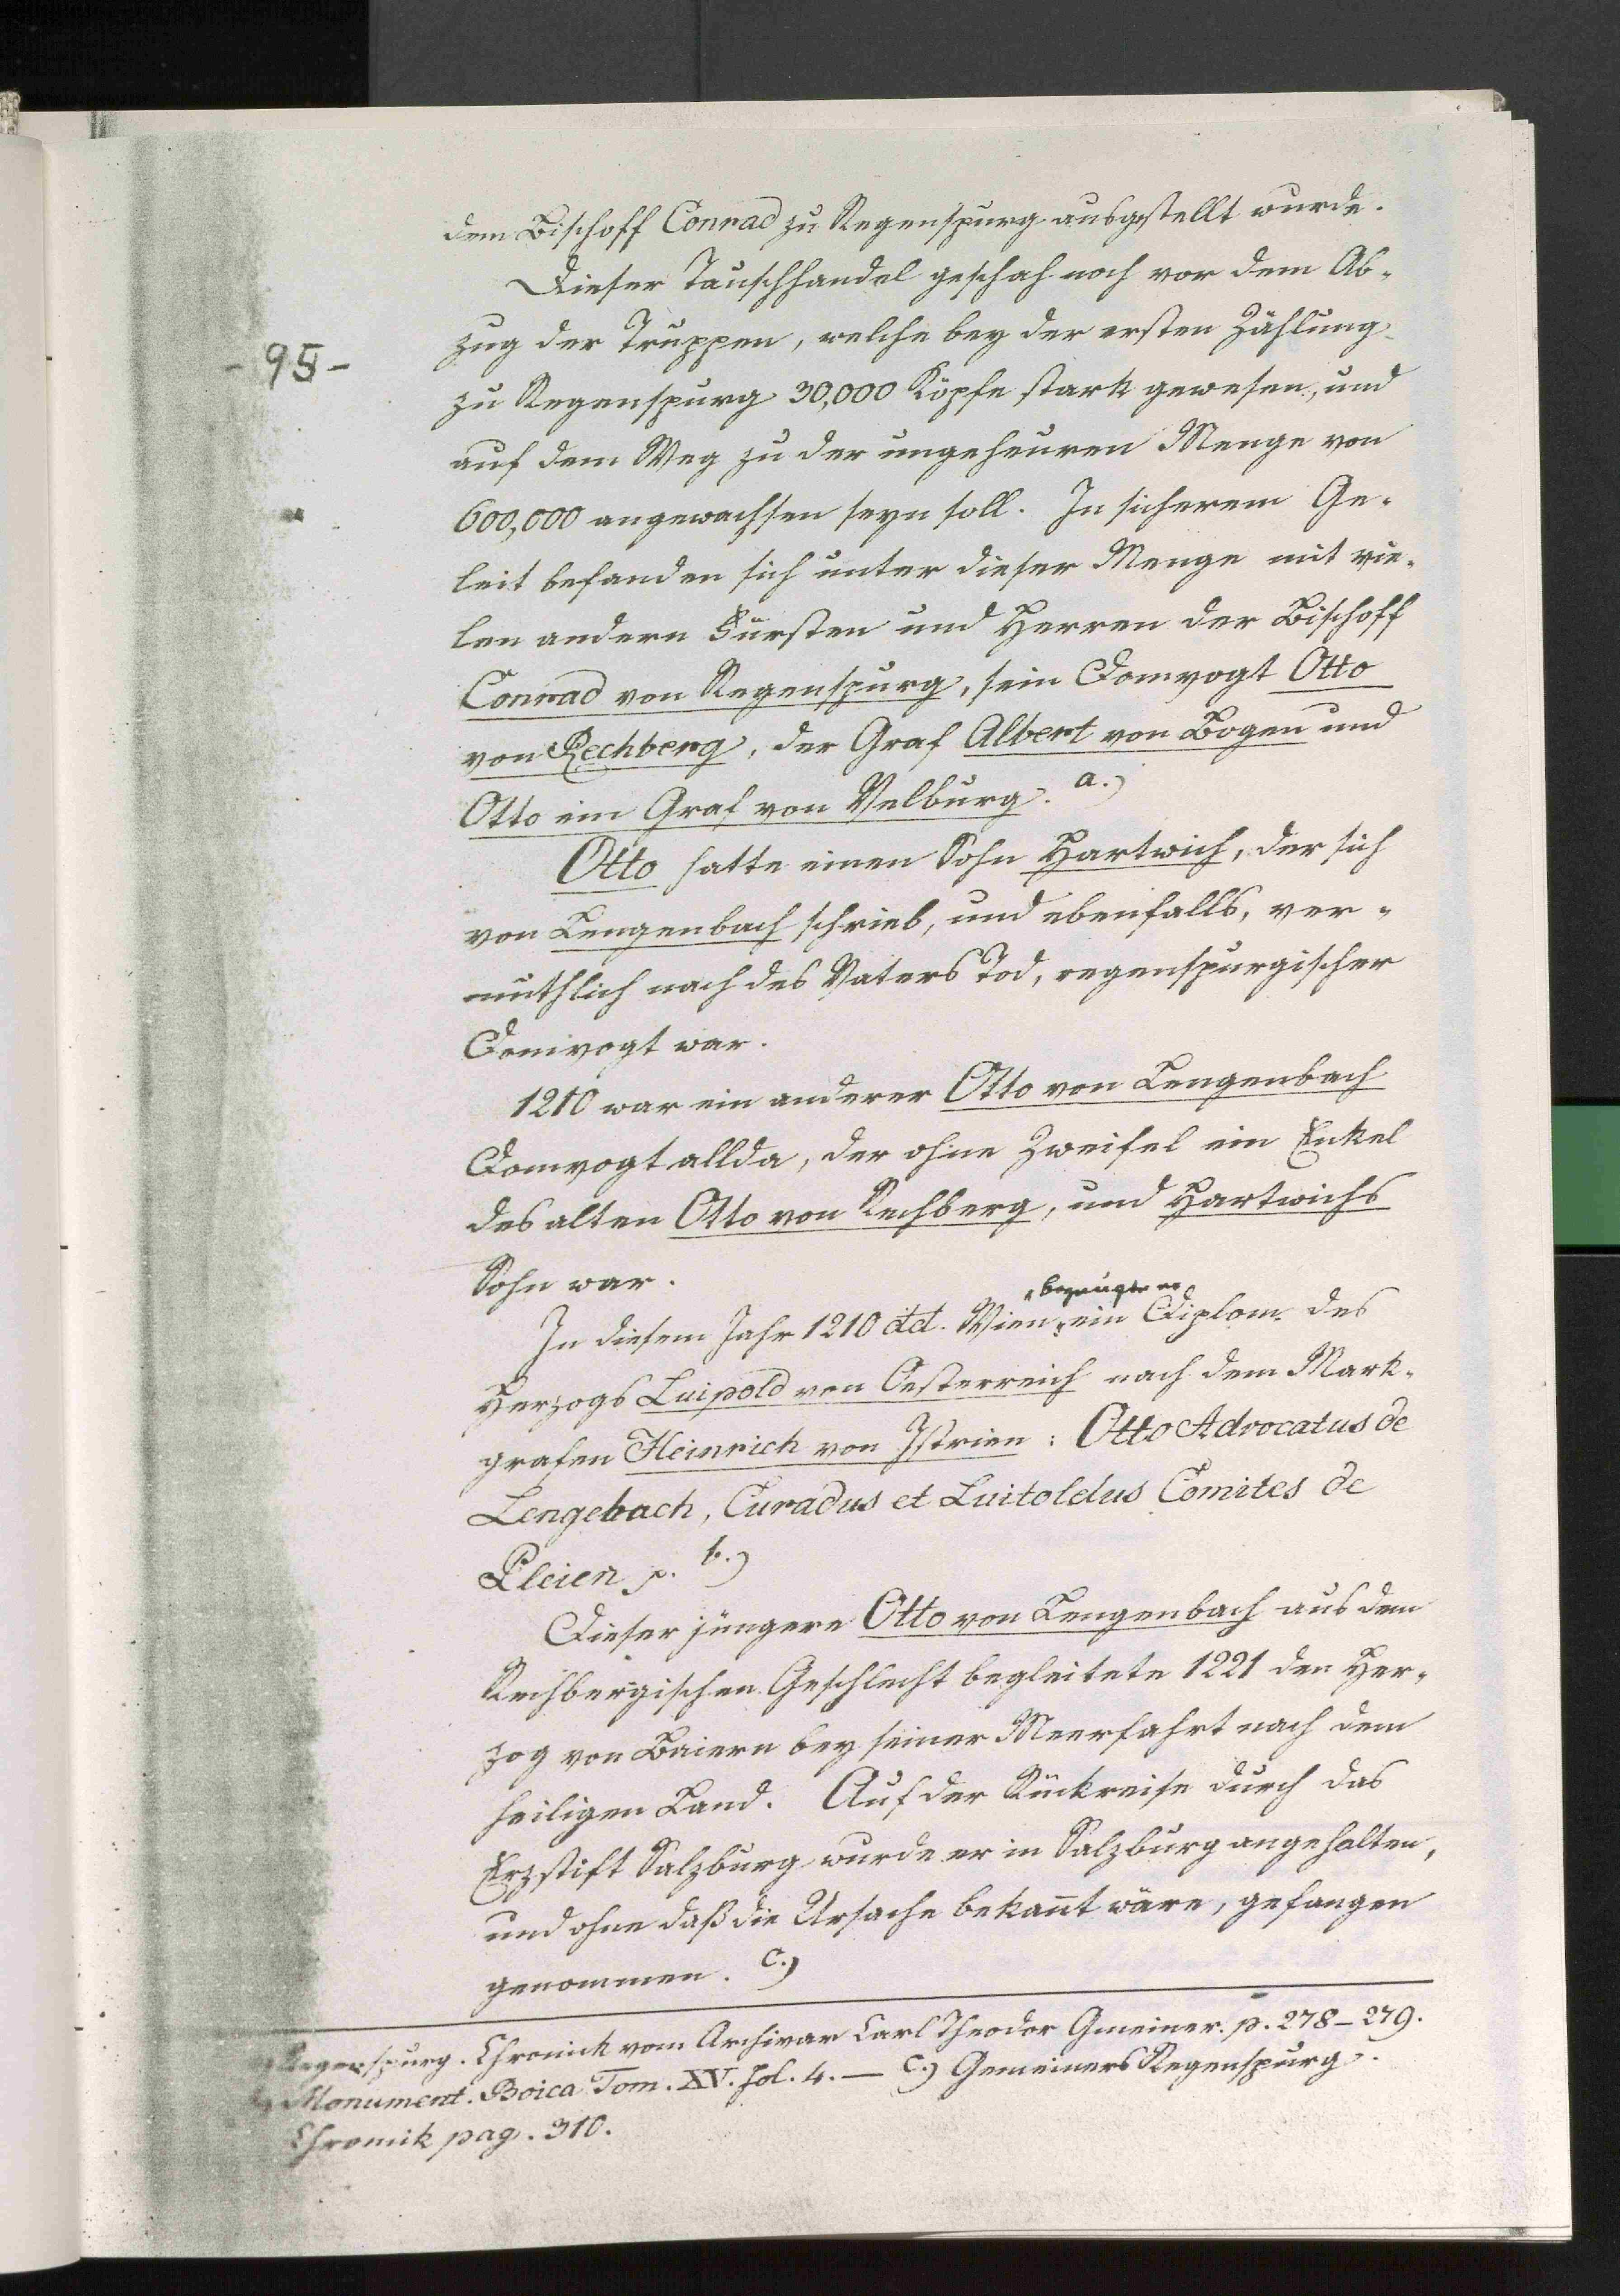 dem Bischoff Conrad zu Regenspurg ausgestellt wurde.
Dieser Tauschhandel geschah noch vor dem Ab-
zug der Truppen, welche bey der ersten Zählung
- 95 -
zu Regenspurg 30,000 Köpfe stark gewesen, und
auf dem Weg zu der ungeheuren Menge von
600,000 angewachsen seyn soll. In sicherem Ge-
leit befanden sich unter dieser Menge mit vie-
len andern Fürsten und Herren der Bischoff
Conrad von Regenspurg, sein Domvogt Otto
von Rechberg, der Graf Albert von Bogen und
Otto ein Graf von Velburg. a.)
Otto hatte einen Sohn Hartwich, der sich
von Lengenbach schrieb, und ebenfalls, ver-
muthlich nach des Vaters Tod, regenspurgischer
Domvogt war.
1210 war ein anderer Otto von Lengenbach
Domvogt allda, der ohne Zweifel ein Enkel
des alten Otto von Rechberg, und Hartwichs
Sohn war.
bezeugte er
In diesem Jahr 1210 dd. Wien, ein Diplom des
Herzogs Luipold von Oesterreich nach dem Mark-
grafen Heinrich von Istrien: Otto Advocatus de
Lengebach, Curadus et Luitoldus Comites de
Pleien p. b.)
Dieser jüngere Otto von Lengenbach aus dem
Rechbergischen Geschlecht begleitete 1221 den Her-
zog von Baiern bey seiner Meerfahrt nach dem
heiligen Land. Auf der Rückreise durch das
Erzstift Salzburg wurde er in Salzburg angehalten,
und ohne daß die Ursache bekan̄t wäre, gefangen
genommen. c.)
Regenspurg. Chronick vom Archivar Carl Theodor Gmeiner. p. 278-279.
Monument. Boica Tom. XV. fol. 4. — c.) Gemeiners Regenspurg.
Chronik pag. 310.